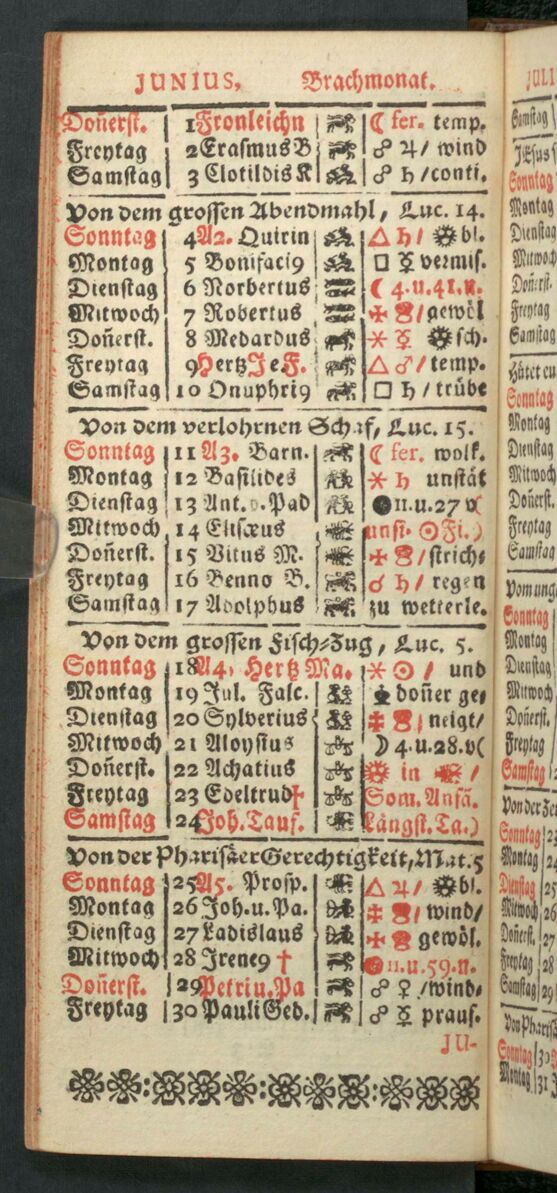 JUNIUS, Brachmonat.
Don̄erst. 1 Fronleichn ☾ fer. temp.
Freytag 2 Erasmus B ☍ ♃ / wind
Samstag 3 Clotildis K ☍ ♄ /conti.
Von dem grossen Abendmahl, Luc. 14.
Sonntag 4 A2. Quirin △ ♄ / bl.
Montag 5 Bonifaci9 □ ☿ vermis.
Dienstag 6 Norbertus ☾ 4.u.41.n.
Mitwoch 7 Robertus /gewöl
Don̄erst. 8 Medardus ⚹ ☿ sch.
Freytag 9 Hertz Je. F. △ ♂ / temp.
Samstag 10 Onuphri9 □ ♄ / trübe
Von dem verlohrnen Schaf, Luc. 15.
Sonntag 11 A3. Barn. ☾ fer. wolk.
Montag 12 Basilides ⚹ ♄ unstät
Dienstag 13 Ant. v. Pad ● 11.u.27 v(
Mitwoch 14 Elisæus unsi. ☉ Fi.)
Don̄erst. 15 Vitus M. /strich⸗
Freytag 16 Benno B. ☌ ♄ / regen
Samstag 17 Adolphus zu wetterle.
Von dem grossen Fisch⸗Zug, Luc. 5.
Sonntag 18 A4, Hertz Ma. ⚹ ☉ / und
Montag 19 Jul. Falc. don̄er ge⸗
Dienstag 20 Sylverius neigt/
Mitwoch 21 Aloysius ☽ 4.u.28.v(
Don̄erst. 22 Achatius in /
Freytag 23 Edeltrud † Som. Anfā.
Samstag 24 Joh. Tauf. Längst. Ta.)
Von der Pharisäer Gerechtigkeit, Mat. 5
Sonntag 25 A5. Prosp. △ ♃ / bl.
Montag 26 Joh. u. Pa. / wind/
Dienstag 27 Ladislaus gewöl.
Mitwoch 28 Irene9 † 11.u.59.n.
Don̄erst. 29 Petri u. Pa ☍ ♀ /wind⸗
Freytag 30 Pauli Ged. ☍ ☿ praus.
JU-
JULI
Samstag
JEsus
Sonntag
Montag
Dienstag
Mitwoch
Don̄erst.
Freytag
Samstag
Hütet eu
Sonntag
Montag
Dienstag
Mitwoch
Don̄erst.
Freytag
Samstag
Vom ung
Sonntag
Montag
Dienstag
Mitwoch
Don̄erst.
Freytag
Samstag
Von der
Sonntag
Montag
Dienstag
Mitwoch
Don̄erst.
Freytag
Samstag 29
Von Pharisä
Sonntag 30
Montag 31